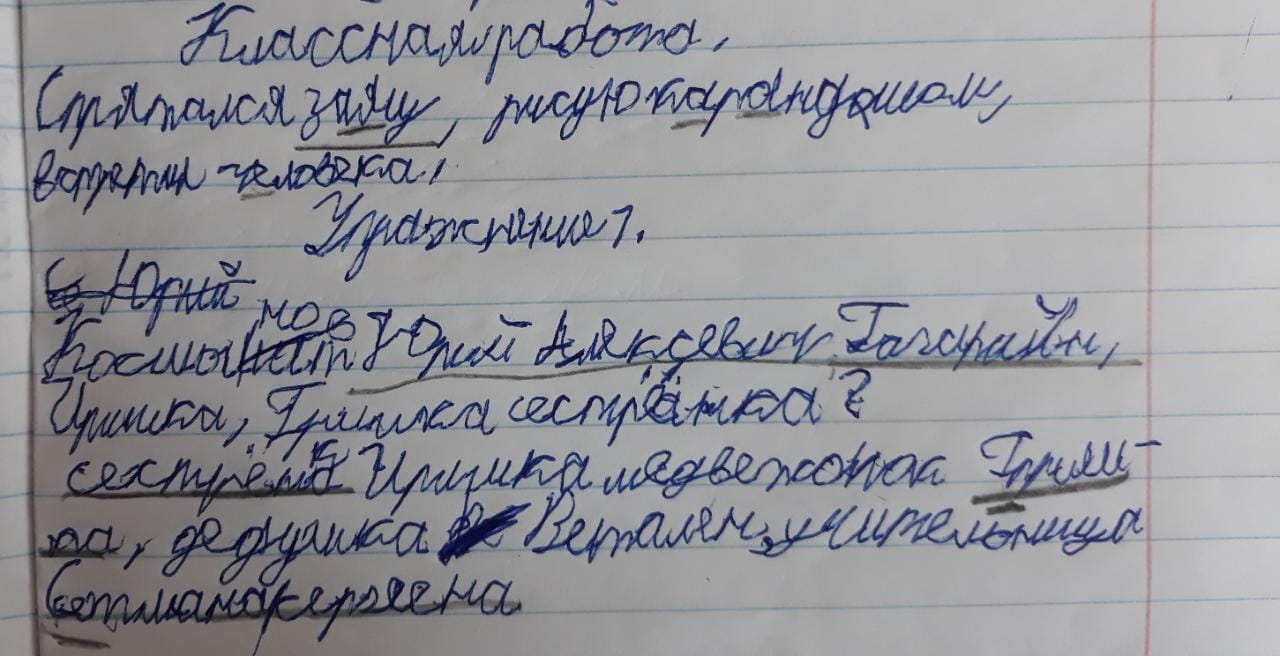 Классная работа.
Спрятался заяц, рисую карандашом,
встретил человека.
Упражнение 7.
Юрий
Космонов Юрий Аляксевич Гагарин,
Иришка, Гришка сестрёшка
сехтрёшка Иришка медвежонок Гриш-
ка, дедушка Веталян, учительница